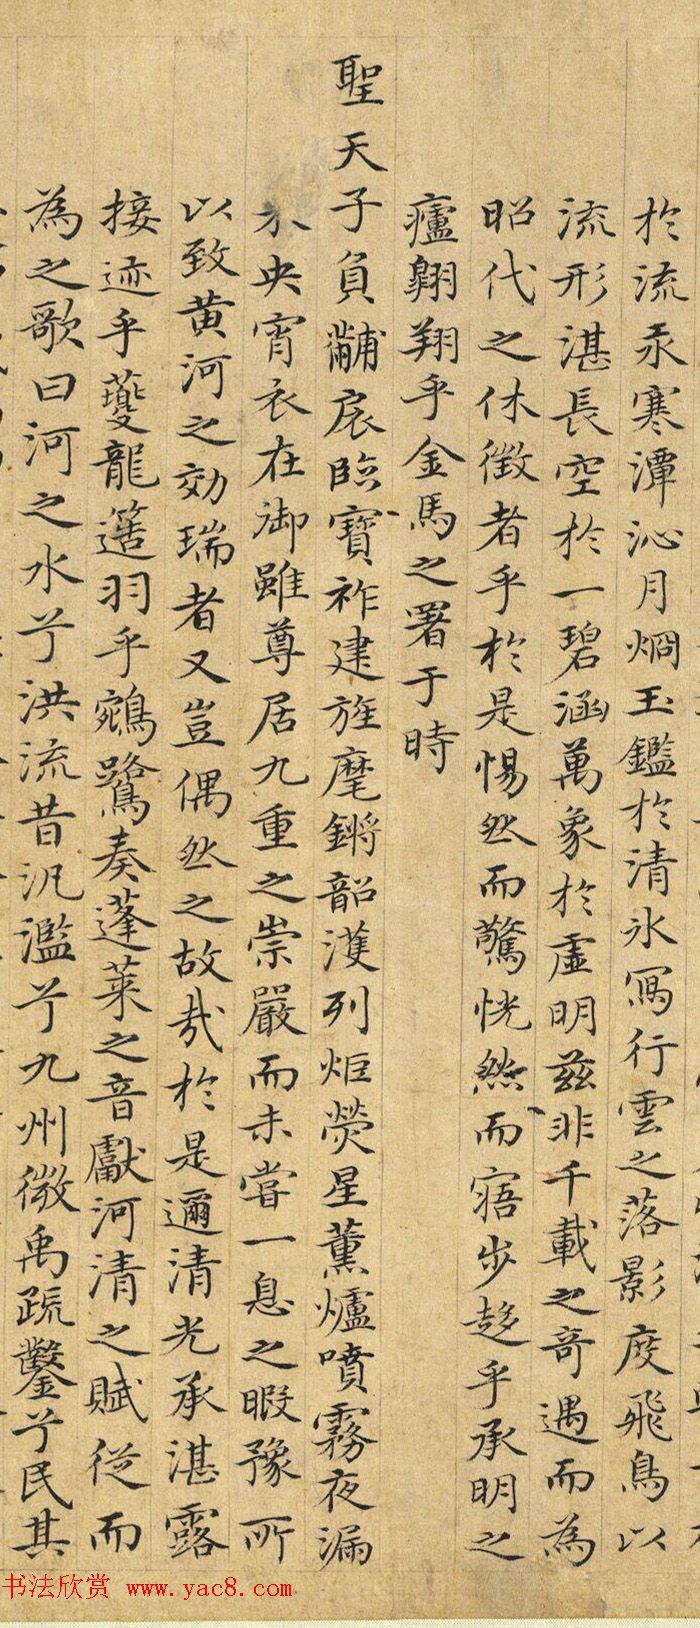 於流汞寒潭沁月烱玉鑑於清氷寫行雲之落影度飛鳥以
流形湛長空於一碧涵萬象於虛明茲非千載之奇遇而為
昭代之休徵者乎於是惕然而驚恍然而寤步趍乎承明之
廬翱翔乎金馬之署于時
聖天子負黼扆臨寶祚建旌麾鏘韶濩列炬熒星薰爐噴霧夜漏
未央宵衣在御雖尊居九重之崇嚴而未嘗一息之暇豫所
以致黄河之効瑞者又豈偶然之故哉於是邇清光承湛露
接迹乎夔龍簉羽乎鵷鷺奏蓬萊之音獻河清之賦從而
為之歌曰河之水兮洪流昔汎濫兮九州微禹疏鑿兮民其
书法欣赏 www.yac8.com